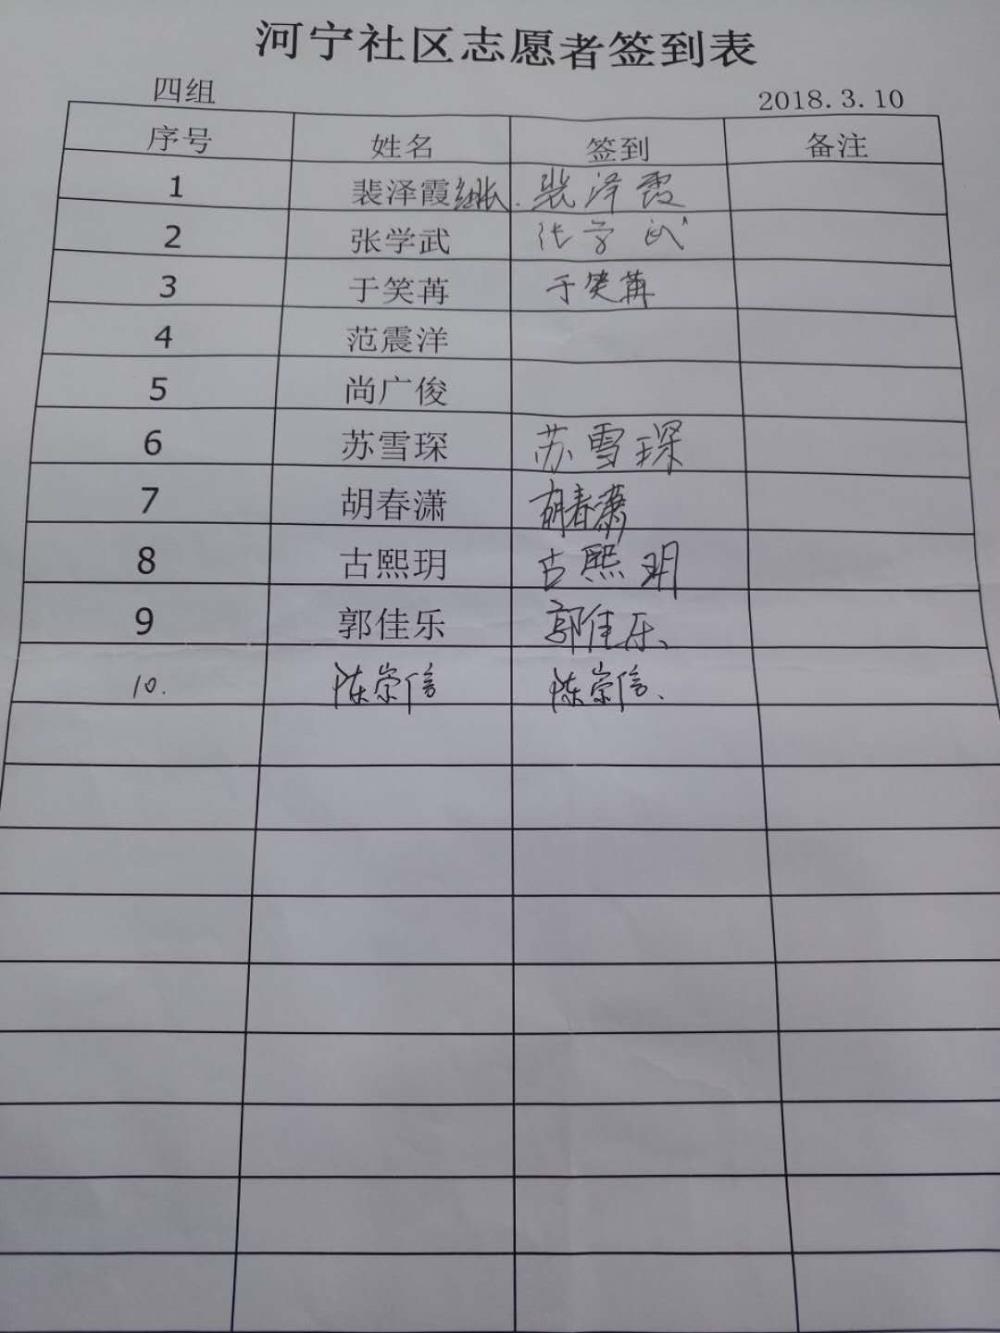 河宁社区志愿者签到表
四组 2018.3.10
序号 姓名 签到 备注
1 裴泽霞组长. 裴泽霞
2 张学武 张学武
3 于笑苒 于笑苒
4 范震洋
5 尚广俊
6 苏雪琛 苏雪琛
7 胡春潇 胡春潇
8 古熙玥 古熙玥
9 郭佳乐 郭佳乐、
10. 陈崇信 陈崇信、